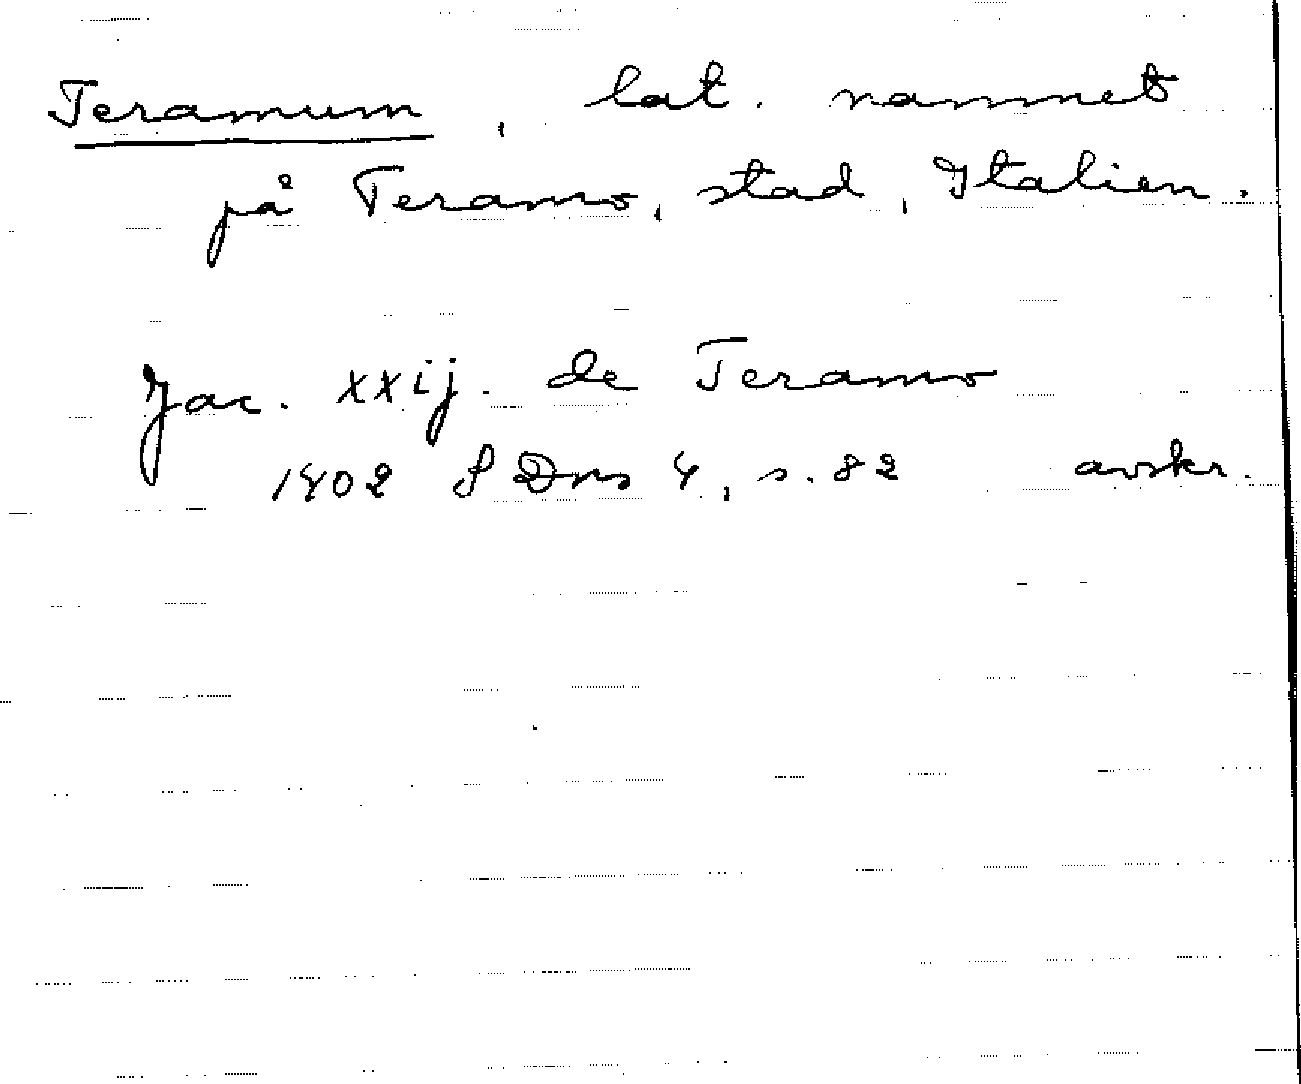 Teramum, lat. namnet
på Teramo, stad, Italien.
Jac. xxij. de Teramo
1402 SDns 4, s. 82 avskr.